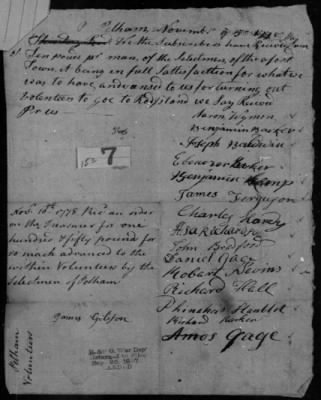 Pelham November
We the Subscribers have Receiv'd
of Ten pounds pr. man, of the Selectmen of the afors'd
Town, it being in full Satisfaction for what
was to have and vansed to us for turning out
Volenteer to Goe to Rodjsland we Say Receiv'd
Pr us
7
Aaron Wyman
Benjamin Barker
Joseph Baldwin
Ebenezer Barker
Benjamin
James Ferguson
Charles Hardy
Asa Richardson
John Bradford
Daniel Gage
Hobart Nevins
Richard Hall
Phinehas
Richard
Amos Gage
Novbr. 10th 1778 Recd. an order
on the Treasurer for one
hundred & fifty pounds for
so much advanced to the
within Volunteers by the
Selectmen of Pelham
James Gibson
Pelham
Volunteers
War Dep